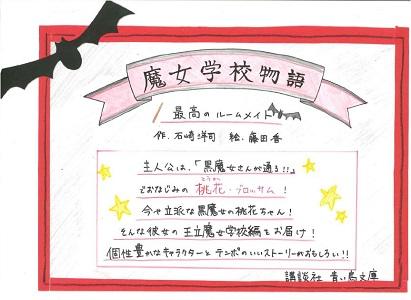 魔女学校物語
最高のルームメイト
作.石崎洋司 絵.藤田香
主人公は、「黒魔女さんが通る!!」
とうか
でおなじみの桃花・ブロッサム!
今や立派な黒魔女の桃花ちゃん!
そんな彼女の王立魔女学校編をお届け!
個性豊かなキャラクターとテンポのいいストーリーがおもしろい!!
講談社 青い鳥文庫